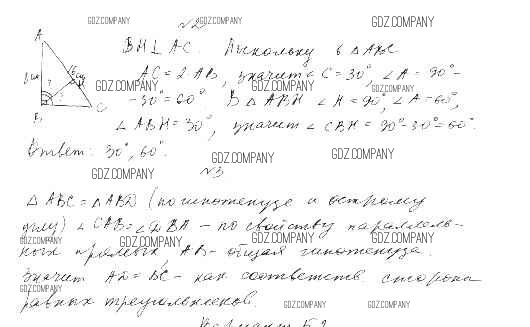 GDZ.COMPANY GDZ.COMPANY GDZ.COMPANY
№2
A
BH ⊥ AC. Поскольку в △ABC
AC = 2 AB, значит ∠C = 30°, ∠A = 90°-
GDZ.COMPANY GDZ.COMPANY GDZ.COMPANY
-30° = 60°. В △ABH ∠H = 90°, ∠A = 60°,
B C
∠ABH = 30°, значит ∠CBH = 90°-30° = 60°.
Ответ: 30°, 60°.
GDZ.COMPANY GDZ.COMPANY
№3
GDZ.COMPANY
△ABC = △ABD (по гипотенузе и острому
углу) ∠CAB = ∠DBA - по свойству параллель-
GDZ.COMPANY GDZ.COMPANY GDZ.COMPANY GDZ.COMPANY
ных прямых, AB - общая гипотенуза.
Значит AD = BC - как соответств. стороны
GDZ.COMPANY
равных треугольников.
GDZ.COMPANY GDZ.COMPANY